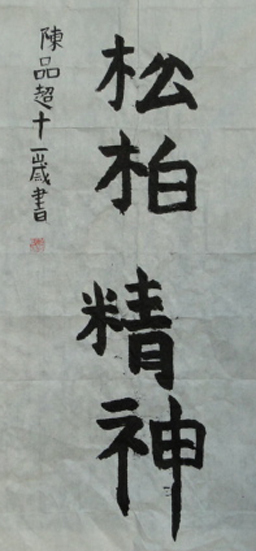 松柏精神
陳品超十一歲書